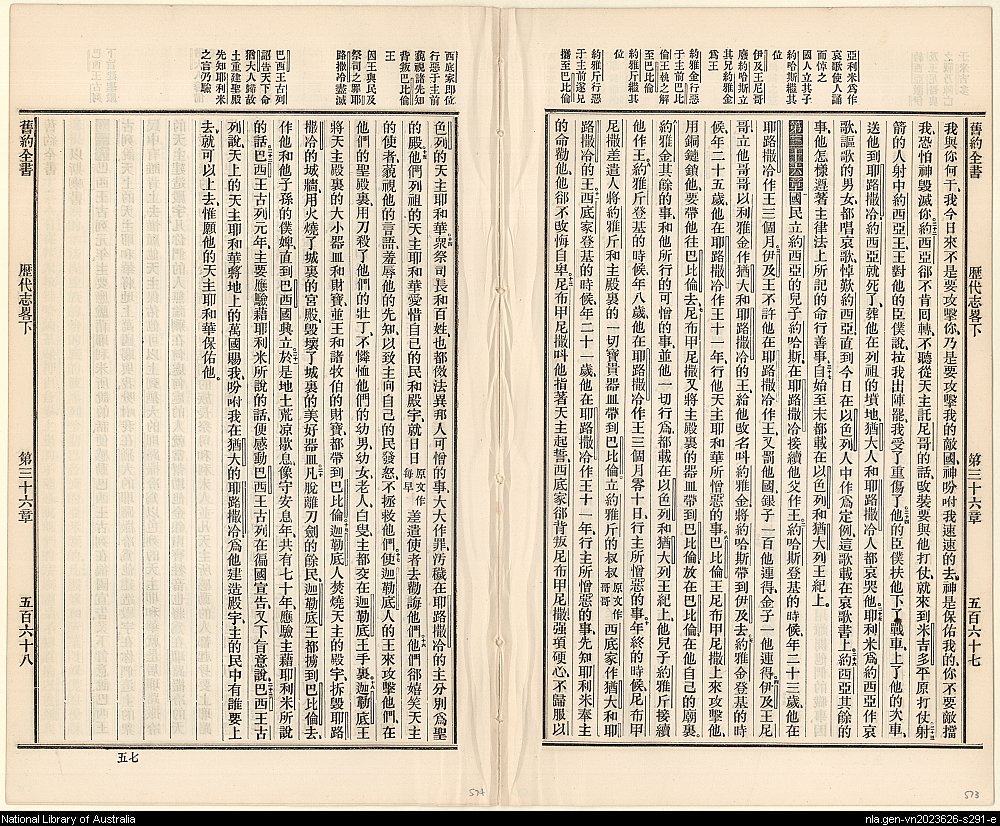 舊約全書
歷代志畧下
第三十六章
五百六十七
亞利米為作
哀歌使人誦
而悼之
國人立其子
約哈斯繼其
位
伊及王尼哥
廢約哈斯立
其兄約雅金
為王
約雅金行惡
于主前巴比
倫王執之解
至巴比倫
約雅斤繼其
位
約雅斤行惡
于主前遂見
擄至巴比倫
我與你何干、我今日來不是要攻擊你、乃是要攻擊我的敵國、神吩咐我速速的去、神是保佑我的、你不要敵擋
我、恐怕神毀滅你、約西亞卻不肯囘轉、不聽從天主託尼哥的話、改裝要與他打仗、就來到米吉多平原打仗、射
箭的人射中約西亞王、王對他的臣僕說、拉我出陣罷、我受了重傷了、他的臣僕扶他下了戰車、上了他的次車、
送他到耶路撒冷、約西亞就死了、葬他在列祖的墳地、猶大人和耶路撒冷人都哀哭他、耶利米為約西亞作哀
歌、謳歌的男女、都唱哀歌、悼歎約西亞、直到今日、在以色列人中作為定例、這歌載在哀歌書上、約西亞其餘的
事、他怎樣遵著主律法上所記的命行善事、自始至末都載在以色列和猶大列王紀上。
第三十六章 國民立約西亞的兒子約哈斯、在耶路撒冷接續他父作王、約哈斯登基的時候、年二十三歲、他在
耶路撒冷作王三個月、伊及王不許他在耶路撒冷作王、又罰他國銀子一百他連得、金子一他連得、伊及王尼
哥立他哥哥以利雅金作猶大和耶路撒冷的王、給他改名呌約雅金、將約哈斯帶到伊及去、約雅金登基的時
候、年二十五歲、他在耶路撒冷作王十一年、行他天主耶和華所憎惡的事、巴比倫王尼布甲尼撒上來攻擊他、
用銅鏈鎖他、要帶他往巴比倫去、尼布甲尼撒又將主殿裏的器皿帶到巴比倫、放在巴比倫在他自己的廟裏、
約雅金其餘的事、和他所行的可憎的事、並他一切行為、都載在以色列和猶大列王紀上、他兒子約雅斤接續
他作王、約雅斤登基的時候、年八歲、他在耶路撒冷作王三個月零十日、行主所憎惡的事、年終的時候、尼布甲
尼撒差遣人將約雅斤和主殿裏的一切寶貴器皿帶到巴比倫、立約雅斤的叔叔原文作哥哥西底家作猶大和耶
路撒冷的王、西底家登基的時候、年二十一歲、他在耶路撒冷作王十一年、行主所憎惡的事、先知耶利米奉主
的命勸他、他卻不改悔自卑、尼布甲尼撒呌他指著天主起誓、西底家卻背叛尼布甲尼撒、強項硬心、不歸服以
西底家即位
行惡于主前
藐視諸先知
背叛巴比倫
王
因王與民及
祭司之罪耶
路撒冷盡滅
巴西王古列
詔告天下命
猶大人歸故
土重建聖殿
先知耶利米
之言乃驗
色列的天主耶和華、衆祭司長和百姓、也都傚法異邦人可憎的事、大大作罪、汚穢在耶路撒冷的主分別為聖
的殿、他們列祖的天主耶和華、愛惜自己的民和殿宇、就日日原文作每早差遣使者去勸誨他們、他們卻嬉笑天主
的使者、藐視他的言語、羞辱他的先知、以致主向自己的民發怒、不拯救他們、使迦勒底人的王來攻擊他們、在
他們的聖殿裏用刀殺了他們的壯丁、不憐恤他們的幼男幼女、老人白叟、主都交在迦勒底王手裏、迦勒底王
將天主殿裏的大小器皿、和財寶、並王和諸牧伯的財寶、都帶到巴比倫、迦勒底人焚燒天主的殿宇、拆毀耶路
撒冷的城牆、用火燒了城裏的宮殿、毀壞了城裏的美好器皿、凡脫離刀劍的餘民、迦勒底王都擄到巴比倫去、
作他和他子孫的僕婢、直到巴西國興立、於是地土荒凉歇息、像守安息年、共有七十年、應驗主藉耶利米所說
的話、巴西王古列元年、主要應驗藉耶利米所說的話、便感動巴西王古列、在徧國宣告、又下旨意說、巴西王古
列說、天上的天主耶和華將地上的萬國賜我、吩咐我在猶大的耶路撒冷為他建造殿宇、主的民中有誰要上
去、就可以上去、惟願他的天主耶和華保佑他。
舊約全書
歷代志畧下
第三十六章
五百六十八
七五
574
573
National Library of Australia
nla.gen-vn2023626-s291-e